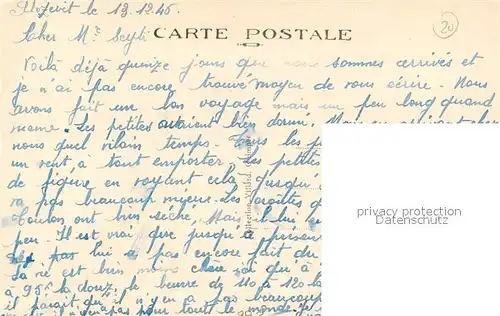 Plozevet le 13.12.46.
CARTE POSTALE
20
Cher Mr
Voilà déjà quinze jours que nous sommes arrivés et
je n'ai pas encore trouvé moyen de vous écrire. Nous
avons fait un bon voyage mais un peu long quand
meme. Les petites avaient bien dormi. Mais en arrivant chez
nous quel vilain temps. Tous les
un vent à tout emporter. Les petites
de figure en voyant cela, jusqu'à
va pas beaucoup mieux. Les
Toulon ont bien séché, Mais il lui
peu. Il est vrai que jusqu'à présent
pas lui a pas encore fait du
La vie est bien moins chère ici qu'à
à 95f la douz. le beurre de 110 à 120 la
il parait qu'il n'y en a pas beaucoup
pas pour tout le monde. Je
privacy protection
Datenschutz